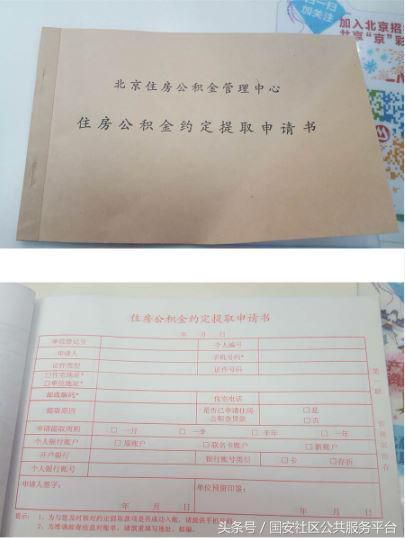 扫一扫
加关注
加入北京招
北京"京"彩
北京住房公积金管理中心
住房公积金约定提取申请书
住房公积金约定提取申请书
年 月 日
单位登记号 个人编号
申请人 手机号码*
证件类型 证件号码
□住宅地址*
□单位地址*
邮政编码* 住宅电话
提取原因 是否已申请住房公积金贷款 □是 □否
申请提取周期 □一月 □一季 □半年 □一年
个人银行账户 □原账户 □联名卡账户 □新账户
开户银行 银行账号类别 □卡 □存折
个人银行账号
申请人签字： 单位预留印鉴：
年 月 日 年 月 日
第一联
提示：1、为与您及时核对约定提取款项是否成功入账，请提供手机号码
头条号 / 国安社区公共服务平台